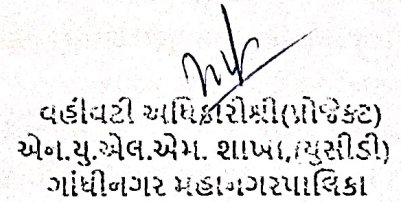 વહીવટી અધિકારીશ્રી(પ્રોજેક્ટ)
એન.યુ.એલ.એમ. શાખા,(યુસીડી)
ગાંધીનગર મહાનગરપાલિકા